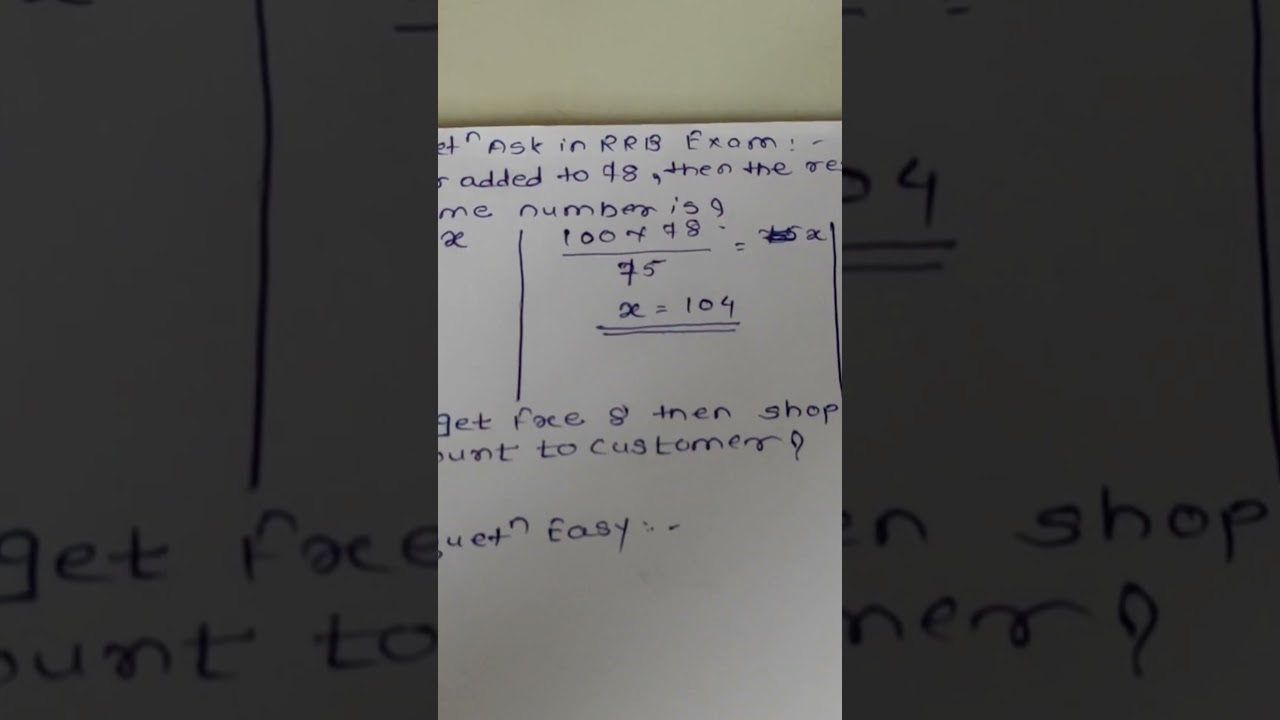 etⁿ Ask in RRB Exam:-
r added to 78, then the re
me number is?
x
100 × 78 = x
75
x = 104
get free 8 then shop
ount to customer?
uetⁿ Easy:-